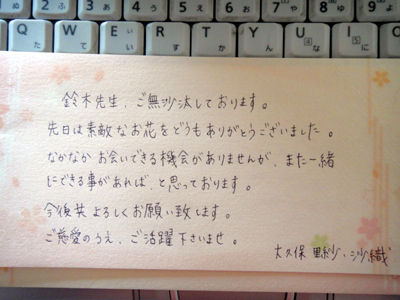 Q た W て E い R す T か Y ん U な I に
鈴木先生、ご無沙汰しております。
先日は素敵なお花をどうもありがとうございました。
なかなかお会いできる機会がありませんが、また一緒
にできる事があれば、と思っております。
今後共よろしくお願い致します。
ご慈愛のうえ、ご活躍下さいませ。
大久保 里紗・沙織